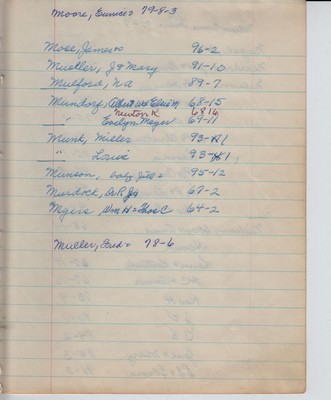 Moore, Eunice 79-8-3
Mose, James 96-2
Mueller, J & Mary 91-10
Mulford, N.A 89-7
Mundorf, Albert and 68-15
Newton K 68 16
" Evelyn Meyer 67-11
Munk, Miller 93-
" Louie 93-
Munson, 95-12
Murdock, 67-2
Myers, Wm H - Thos C 64-2
Muller, 78-6